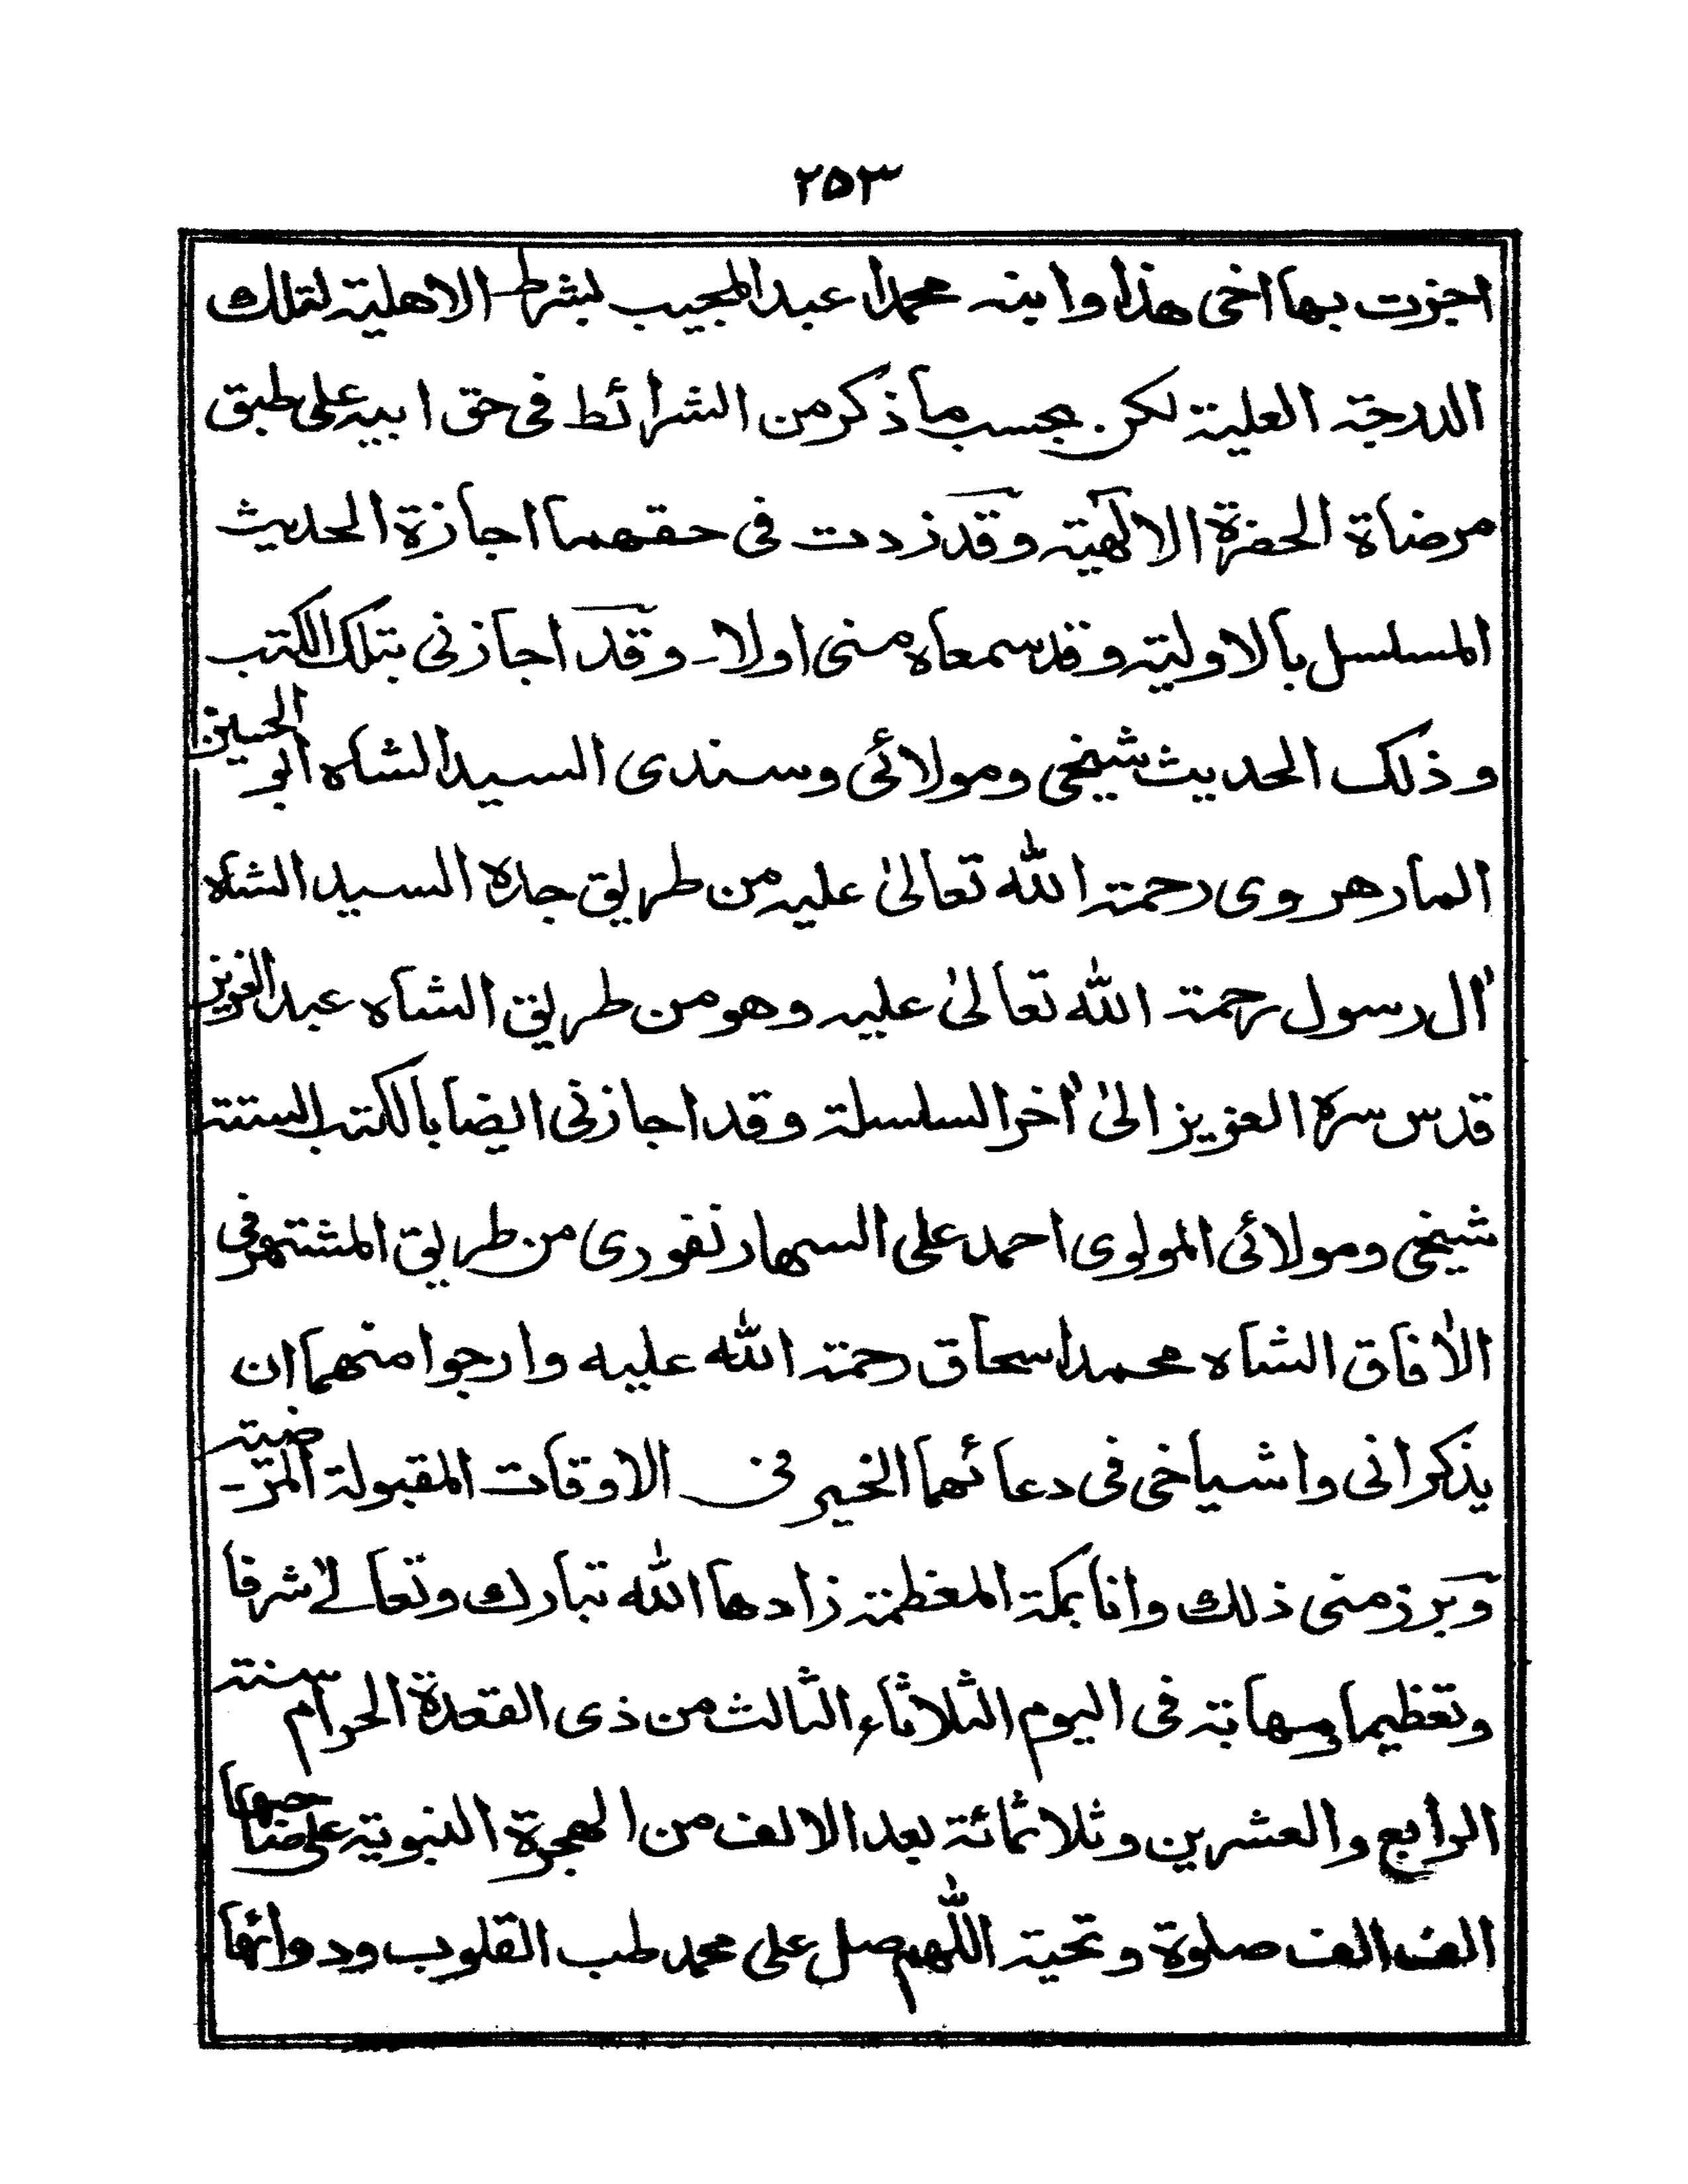 ۲۵۳
اجزت بھا اخی ھذا وابنہ محمدا عبدالمجیب بشرط الاھلیۃ لتلک
الدرجۃ العلیۃ لکن بحسب ما ذکر من الشرائط فی حق ابیہ علی طبق
مرضاۃ الحضرۃ الالٰھیۃ وقد زدت فی حقھما اجازۃ الحدیث
المسلسل بالاولیۃ وقد سمعاہ منی اولا۔ وقد اجازنی بتلک الکتب
وذلک الحدیث شیخی ومولائی وسندی السید الشاہ ابو الحسین
المارھروی رحمۃ اللہ تعالیٰ علیہ من طریق جدہ السید الشاہ
اٰل رسول رحمۃ اللہ تعالیٰ علیہ وھو من طریق الشاہ عبدالعزیز
قدس سرہ العزیز الیٰ اٰخر السلسلۃ وقد اجازنی ایضا بالکتب الستۃ
شیخی ومولائی المولوی احمد علی السھارنفوری من طریق المشتھر فی
الاٰفاق الشاہ محمد اسحاق رحمۃ اللہ علیہ وارجوا منھما ان
یذکرانی واشیاخی فی دعائھما الخیر فی الاوقات المقبولۃ المرضیۃ۔
وبرز منی ذلک وانا بمکۃ المعظمۃ زادھا اللہ تبارک وتعالےٰ شرفا
وتعظیما ومھابۃ فی الیوم الثلاثاء الثالث من ذی القعدۃ الحرام سنۃ
الرابع والعشرین وثلاثمائۃ بعد الالف من الھجرۃ النبویۃ علی صاحبھا
الف الف صلوۃ وتحیۃ اللھم صل علی محمد طب القلوب ودوائھا